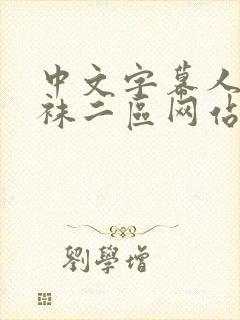 中文字幕人
袜二區网佔
劉學增